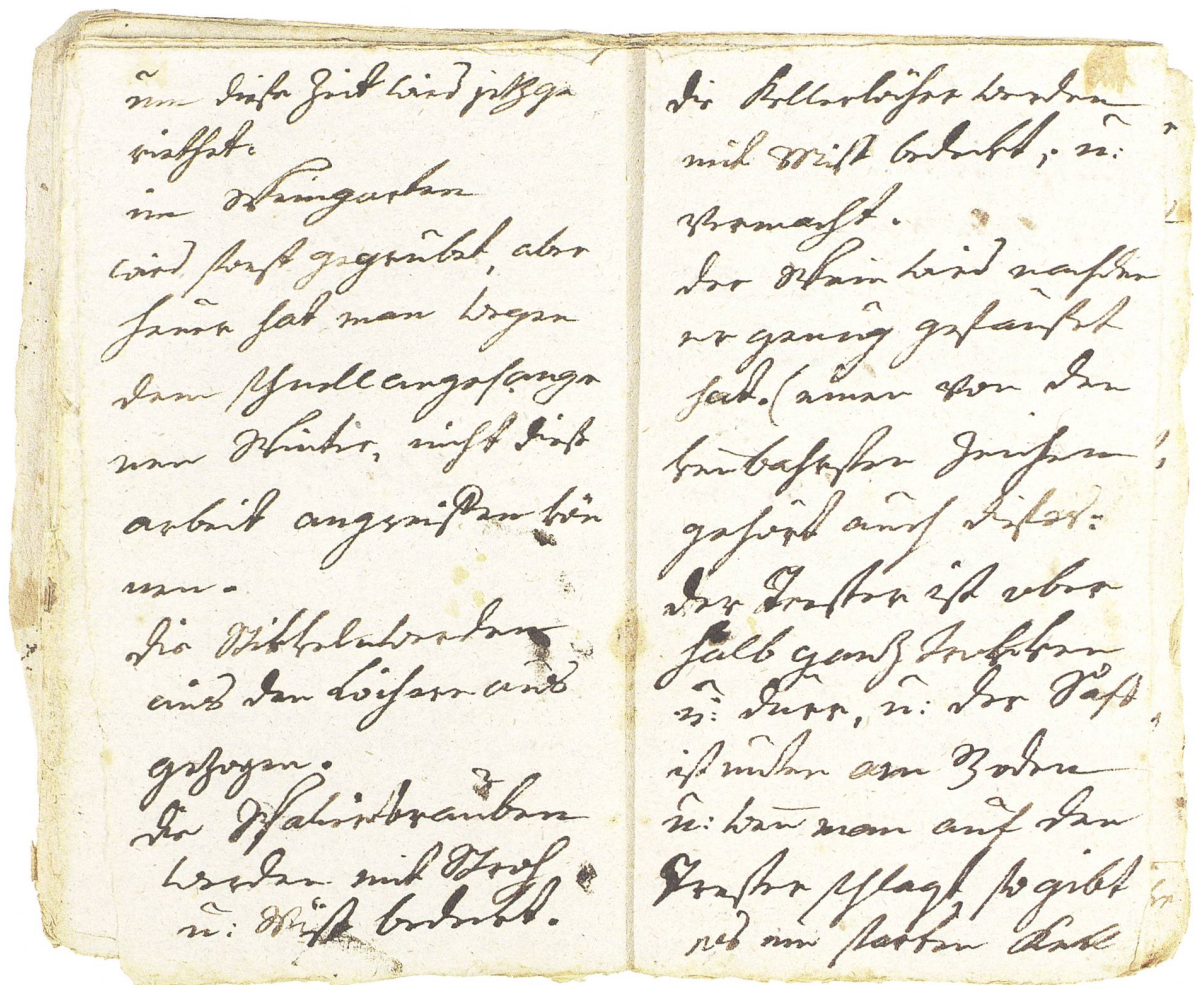 um diese Zeit wird
im Weingarten
wird sonst gegrübet, aber
heüer hat man wegen
dem schnell angefange
nen Winter, nicht diese
arbeit angreiffen kön
nen.
die Stikkeln werden
aus den Löchern aus
gezogen.
die Spaliertrauben
werden mit Stroh
u: Mist bedeckt.
die Kellerlöcher werden
mit Mist bedeckt, u:
vermacht.
der Wein wird nachdem
er genug gesauset
hat. (einen von den
kenbahrsten Zeichen
gehört auch dieses:
der Trester ist ober
halb gantz trokken
u: dürr, u: der Saft
ist unten am Boden
u: wen man auf den
Trester schlagt, so gibt
es ein starken